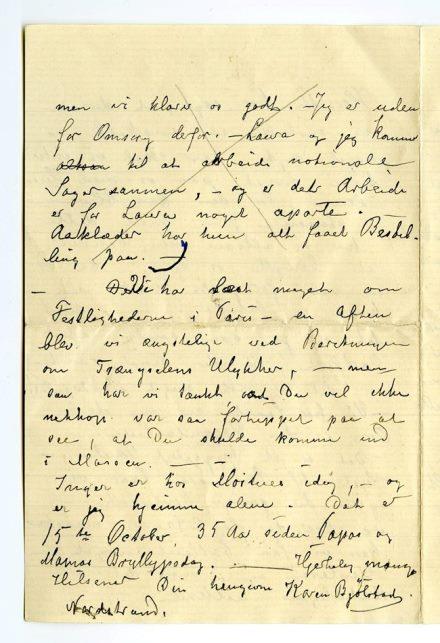 men vi klarer os godt. – Jeg er uden
for Omsorg derfor. – Laura og jeg kommer
til at arbeide nationale
Sager sammen, – og er det Arbeide
er for Laura noget aparte.
Aaklæder har hun alt faaet Bestil-
ling paa. –
– Vi har læst meget om
Festlighederne i Paris – en Aften
blev vi ængstelige ved Beretningen
om Trængselens Ulykker, – men
saa har vi tænkt, at Du vel ikke
var saa forhippet paa at
see, at Du skulde komme ind
i Massen. – –
Inger er hos idag, – og
er jeg hjemme alene. Det er
15de October, 35 Aar siden Papas og
Mamas Bryllupsdag. – Hjertelig mange
Hilsener Din hengivne Karen Bjølstad.
Nordstrand.